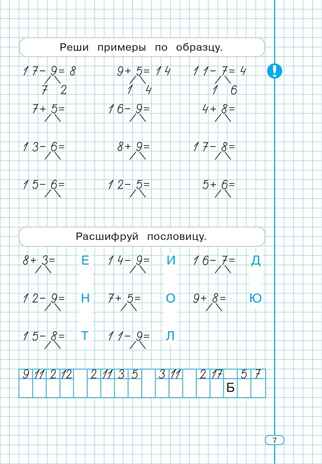 Реши примеры по образцу.
17-9=8 9+5=14 11-7=4
7 2 1 4 1 6
7+5= 16-9= 4+8=
13-6= 8+9= 17-8=
15-6= 12-5= 5+6=
Расшифруй пословицу.
8+3= Е 14-9= И 16-7= Д
12-9= Н 7+5= О 9+8= Ю
15-8= Т 11-9= Л
9 11 2 12 2 11 3 5 3 11 2 17 5 7
Б
7